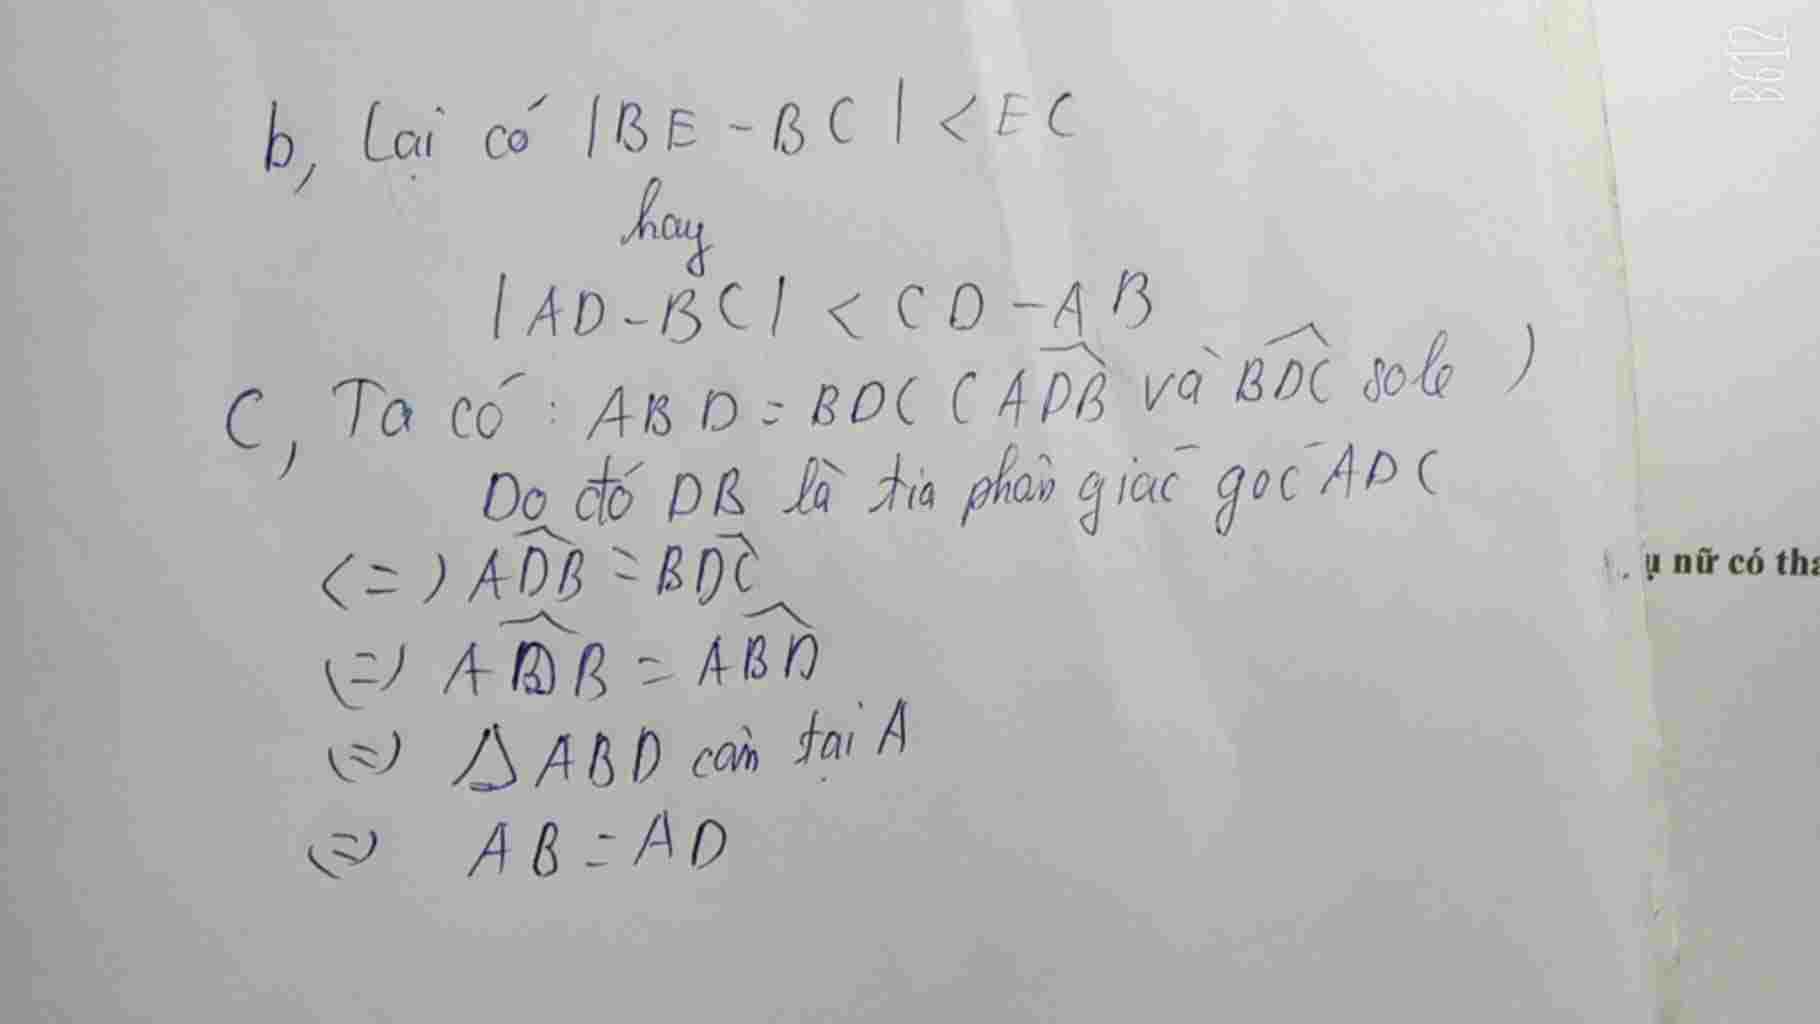 b, Lại có |BE - BC| < EC
hay
|AD - BC| < CD - AB
C, Ta có : ABD = BDC ( \widehat{ADB} và \widehat{BDC} sole )
Do đó DB là tia phân giác góc ADC
(=) \widehat{ADB} = \widehat{BDC}
(=) \widehat{ADB} = \widehat{ABD}
(=) Δ ABD cân tại A
(=) AB = AD
ụ nữ có tha
B612